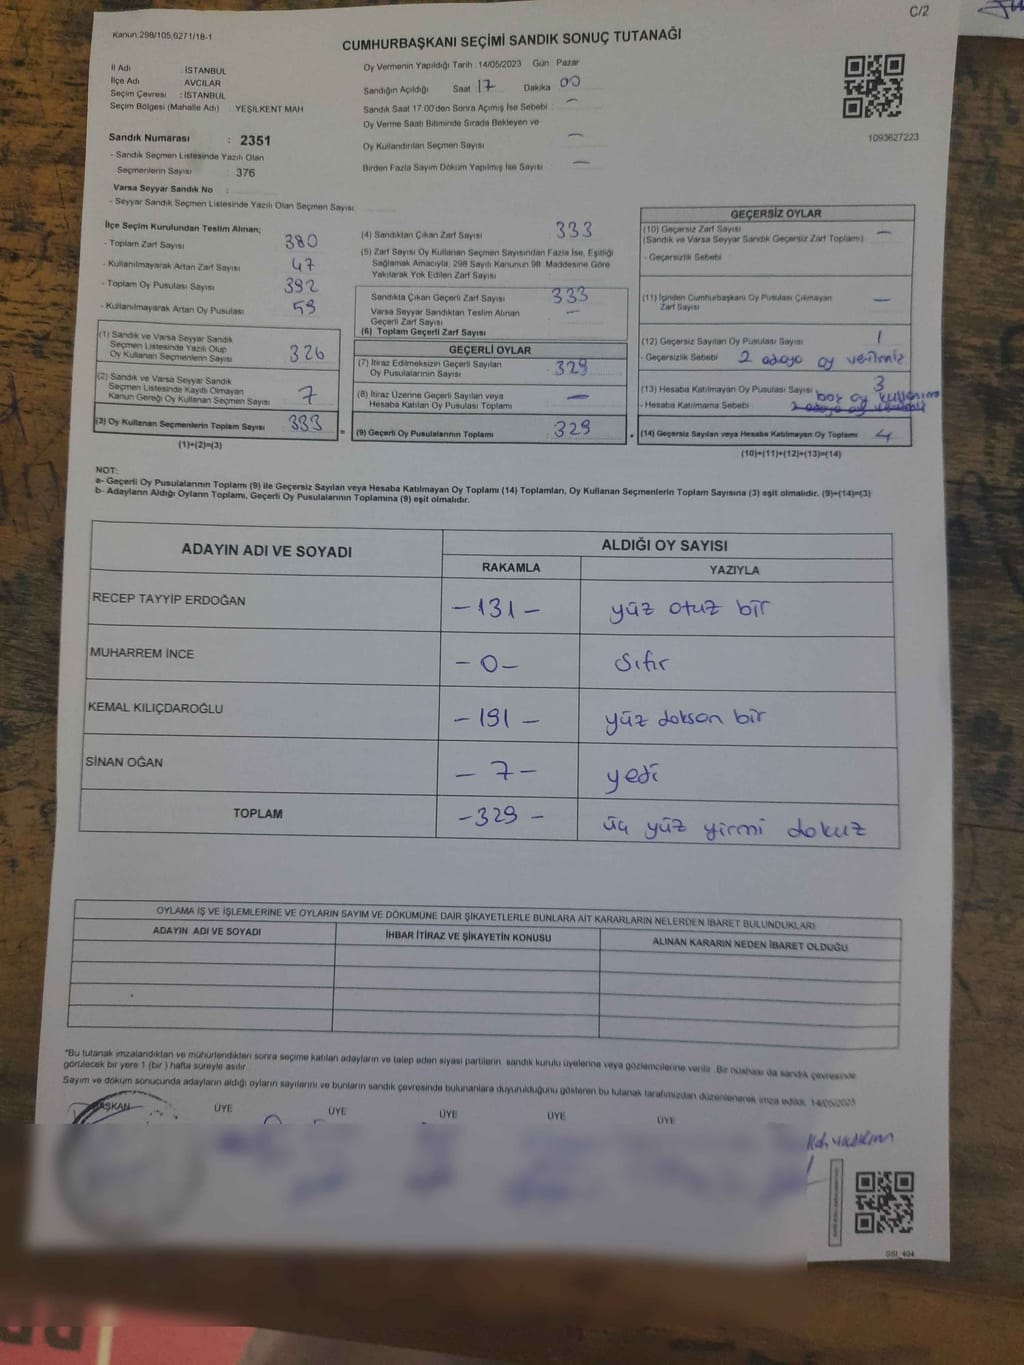 C/2
Kanun,298/105,6271/18-1
CUMHURBAŞKANI SEÇİMİ SANDIK SONUÇ TUTANAĞI
İl Adı : İSTANBUL
İlçe Adı : AVCILAR
Seçim Çevresi : İSTANBUL
Seçim Bölgesi (Mahalle Adı) YEŞİLKENT MAH
Sandık Numarası : 2351
- Sandık Seçmen Listesinde Yazılı Olan
Seçmenlerin Sayısı : 376
Varsa Seyyar Sandık No :
- Seyyar Sandık Seçmen Listesinde Yazılı Olan Seçmen Sayısı
Oy Vermenin Yapıldığı Tarih :14/05/2023 Gün Pazar
Sandığın Açıldığı Saat 17 Dakika 00
Sandık Saat 17.00'den Sonra Açımış İse Sebebi : —
Oy Verme Saati Bitiminde Sırada Bekleyen ve
Oy Kullandırılan Seçmen Sayısı —
Birden Fazla Sayım Döküm Yapılmış İse Sayısı —
1093627223
İlçe Seçim Kurulundan Teslim Alınan;
- Toplam Zarf Sayısı 380
- Kullanılmayarak Artan Zarf Sayısı 47
- Toplam Oy Pusulası Sayısı 392
- Kullanılmayarak Artan Oy Pusulası 59
(1) Sandık ve Varsa Seyyar Sandık
Seçmen Listesinde Yazılı Olup
Oy Kullanan Seçmenlerin Sayısı 326
(2) Sandık ve Varsa Seyyar Sandık
Seçmen Listesinde Kayıtlı Olmayan
Kanun Gereği Oy Kullanan Seçmen Sayısı 7
(3) Oy Kullanan Seçmenlerin Toplam Sayısı 333 =
(1)+(2)=(3)
(4) Sandıktan Çıkan Zarf Sayısı 333
(5) Zarf Sayısı Oy Kullanan Seçmen Sayısından Fazla İse, Eşitliği
Sağlamak Amacıyla, 298 Sayılı Kanunun 98. Maddesine Göre
Yakılarak Yok Edilen Zarf Sayısı
Sandıkta Çıkan Geçerli Zarf Sayısı 333
Varsa Seyyar Sandıktan Teslim Alınan
Geçerli Zarf Sayısı —
(6) Toplam Geçerli Zarf Sayısı
GEÇERLİ OYLAR
(7) İtiraz Edilmeksizin Geçerli Sayılan
Oy Pusulalarının Sayısı 329
(8) İtiraz Üzerine Geçerli Sayılan veya
Hesaba Katılan Oy Pusulası Toplamı —
(9) Geçerli Oy Pusulalarının Toplamı 329 +
GEÇERSİZ OYLAR
(10) Geçersiz Zarf Sayısı —
(Sandık ve Varsa Seyyar Sandık Geçersiz Zarf Toplamı)
- Geçersizlik Sebebi
(11) İçinden Cumhurbaşkanı Oy Pusulası Çıkmayan
Zarf Sayısı —
(12) Geçersiz Sayılan Oy Pusulası Sayısı 1
- Geçersizlik Sebebi 2 adaya oy verilmiş
(13) Hesaba Katılmayan Oy Pusulası Sayısı 3
boş oy kullanımı
- Hesaba Katılmama Sebebi
(14) Geçersiz Sayılan veya Hesaba Katılmayan Oy Toplamı 4
(10)+(11)+(12)+(13)=(14)
NOT:
a- Geçerli Oy Pusulalarının Toplamı (9) ile Geçersiz Sayılan veya Hesaba Katılmayan Oy Toplamı (14) Toplamları, Oy Kullanan Seçmenlerin Toplam Sayısına (3) eşit olmalıdır. (9)+(14)=(3)
b- Adayların Aldığı Oyların Toplamı, Geçerli Oy Pusulalarının Toplamına (9) eşit olmalıdır.
ADAYIN ADI VE SOYADI ALDIĞI OY SAYISI
RAKAMLA YAZIYLA
RECEP TAYYİP ERDOĞAN -131- yüz otuz bir
MUHARREM İNCE -0- sıfır
KEMAL KILIÇDAROĞLU -191- yüz doksan bir
SİNAN OĞAN -7- yedi
TOPLAM -329- üç yüz yirmi dokuz
OYLAMA İŞ VE İŞLEMLERİNE VE OYLARIN SAYIM VE DÖKÜMÜNE DAİR ŞİKAYETLERLE BUNLARA AİT KARARLARIN NELERDEN İBARET BULUNDUKLARI
ADAYIN ADI VE SOYADI İHBAR İTİRAZ VE ŞİKAYETİN KONUSU ALINAN KARARIN NEDEN İBARET OLDUĞU
*Bu tutanak imzalandıktan ve mühürlendikten sonra seçime katılan adayların ve talep eden siyasi partilerin sandık kurulu üyelerine veya gözlemcilerine verilir. Bir nüshası da sandık çevresinde
görülecek bir yere 1 (bir) hafta süreyle asılır.
Sayım ve döküm sonucunda adayların aldığı oyların sayılarını ve bunların sandık çevresinde bulunanlara duyurulduğunu gösteren bu tutanak tarafımızdan düzenlenerek imza edildi. 14/05/2023
BAŞKAN ÜYE ÜYE ÜYE ÜYE ÜYE
SSI_404